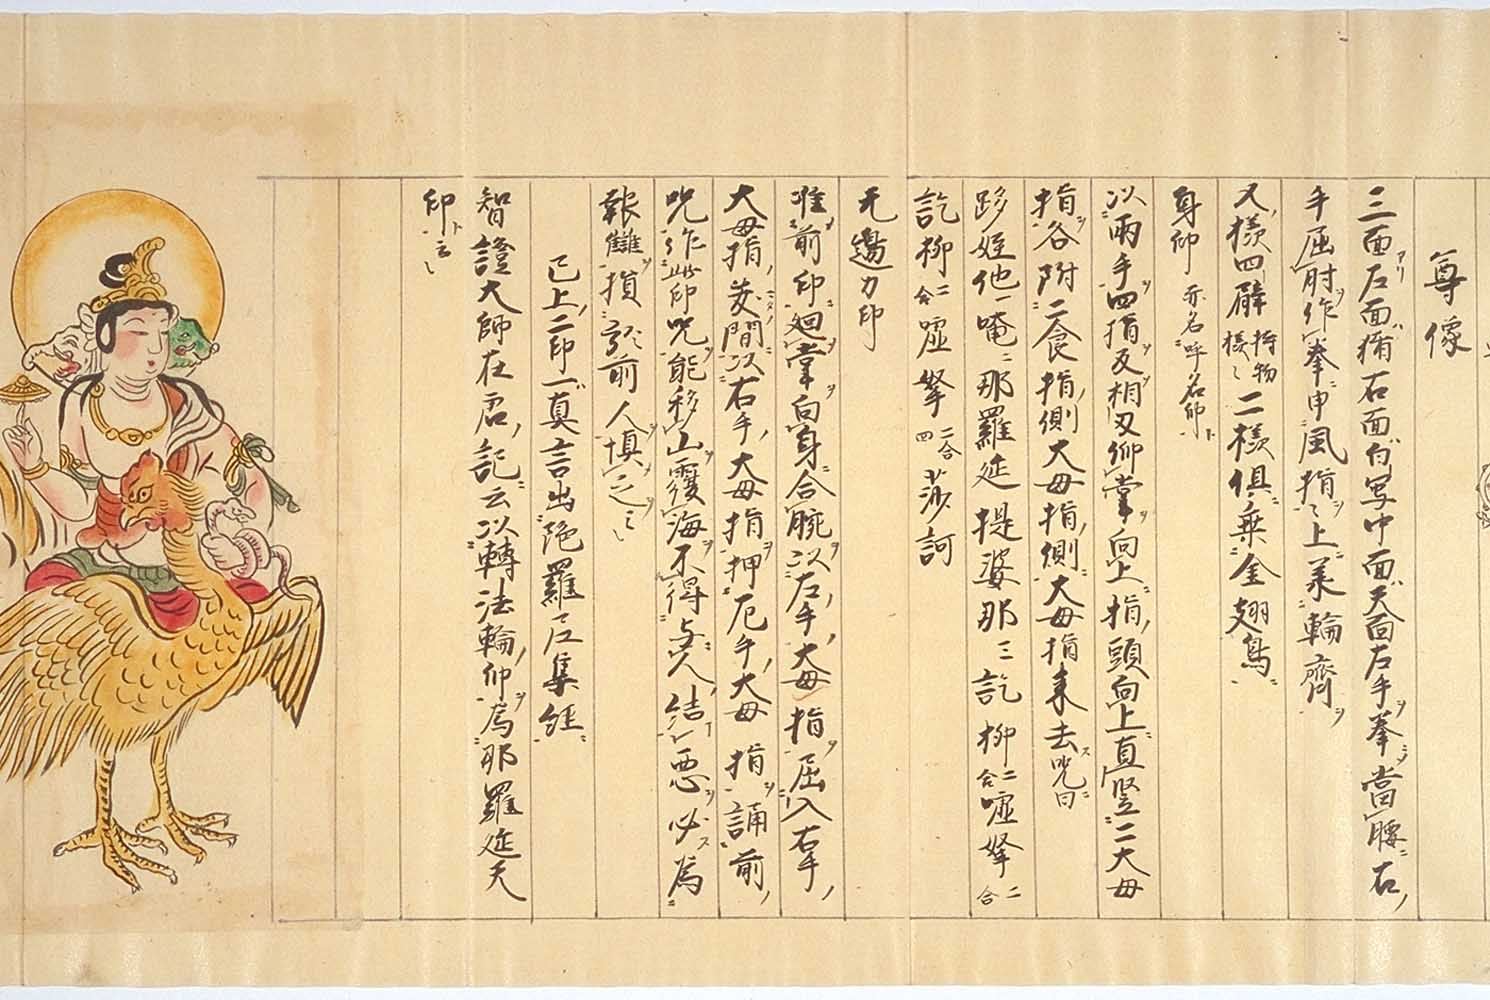 尊像
三面左面猪右面白象中面天面左手拳當腰右
手屈肘作拳申風指〻上義輪齊
又樣四臂持物樣〻二樣俱乘金翅鳥
身印亦名呼名印
以兩手四指反相叉仰掌向上指頭向上直竪二大母
指各附二食指側大母指側大母指来去咒曰
跢姪他一唵二那羅延提婆那三訖柳二合噓拏二合
訖柳二合噓拏二合四莎訶
无邊力印
准前印廻掌向身合腕以左手大母指屈入右手
大母指岐間次右手大母指押左手大母指誦前
咒作此印咒能移山覆海不得与人結惡必為
報讎損前人慎之〻
已上二印真言出陀羅尼集經
智證大師在唐記云以轉法輪印為那羅延天
印云〻